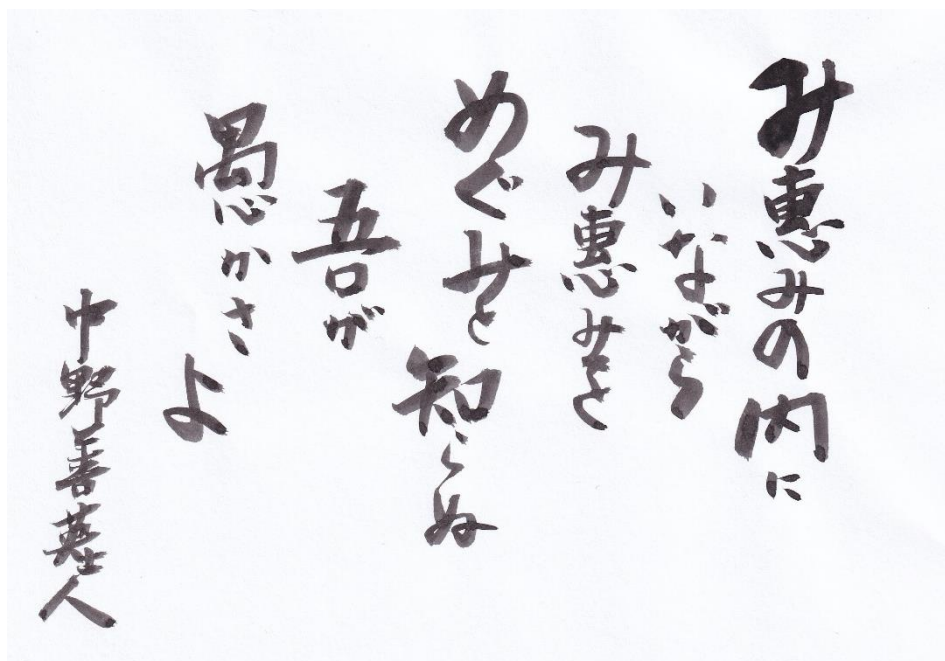 み恵みの内に
いながら
み恵みを
めぐみと知らぬ
吾が
愚かさよ
中野善英士人